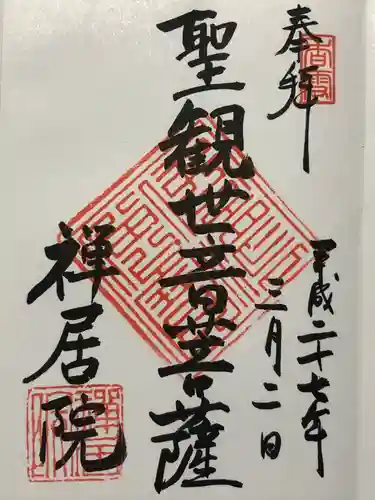 奉拜
聖観世音菩薩
平成二十七年
三月二日
禅居院